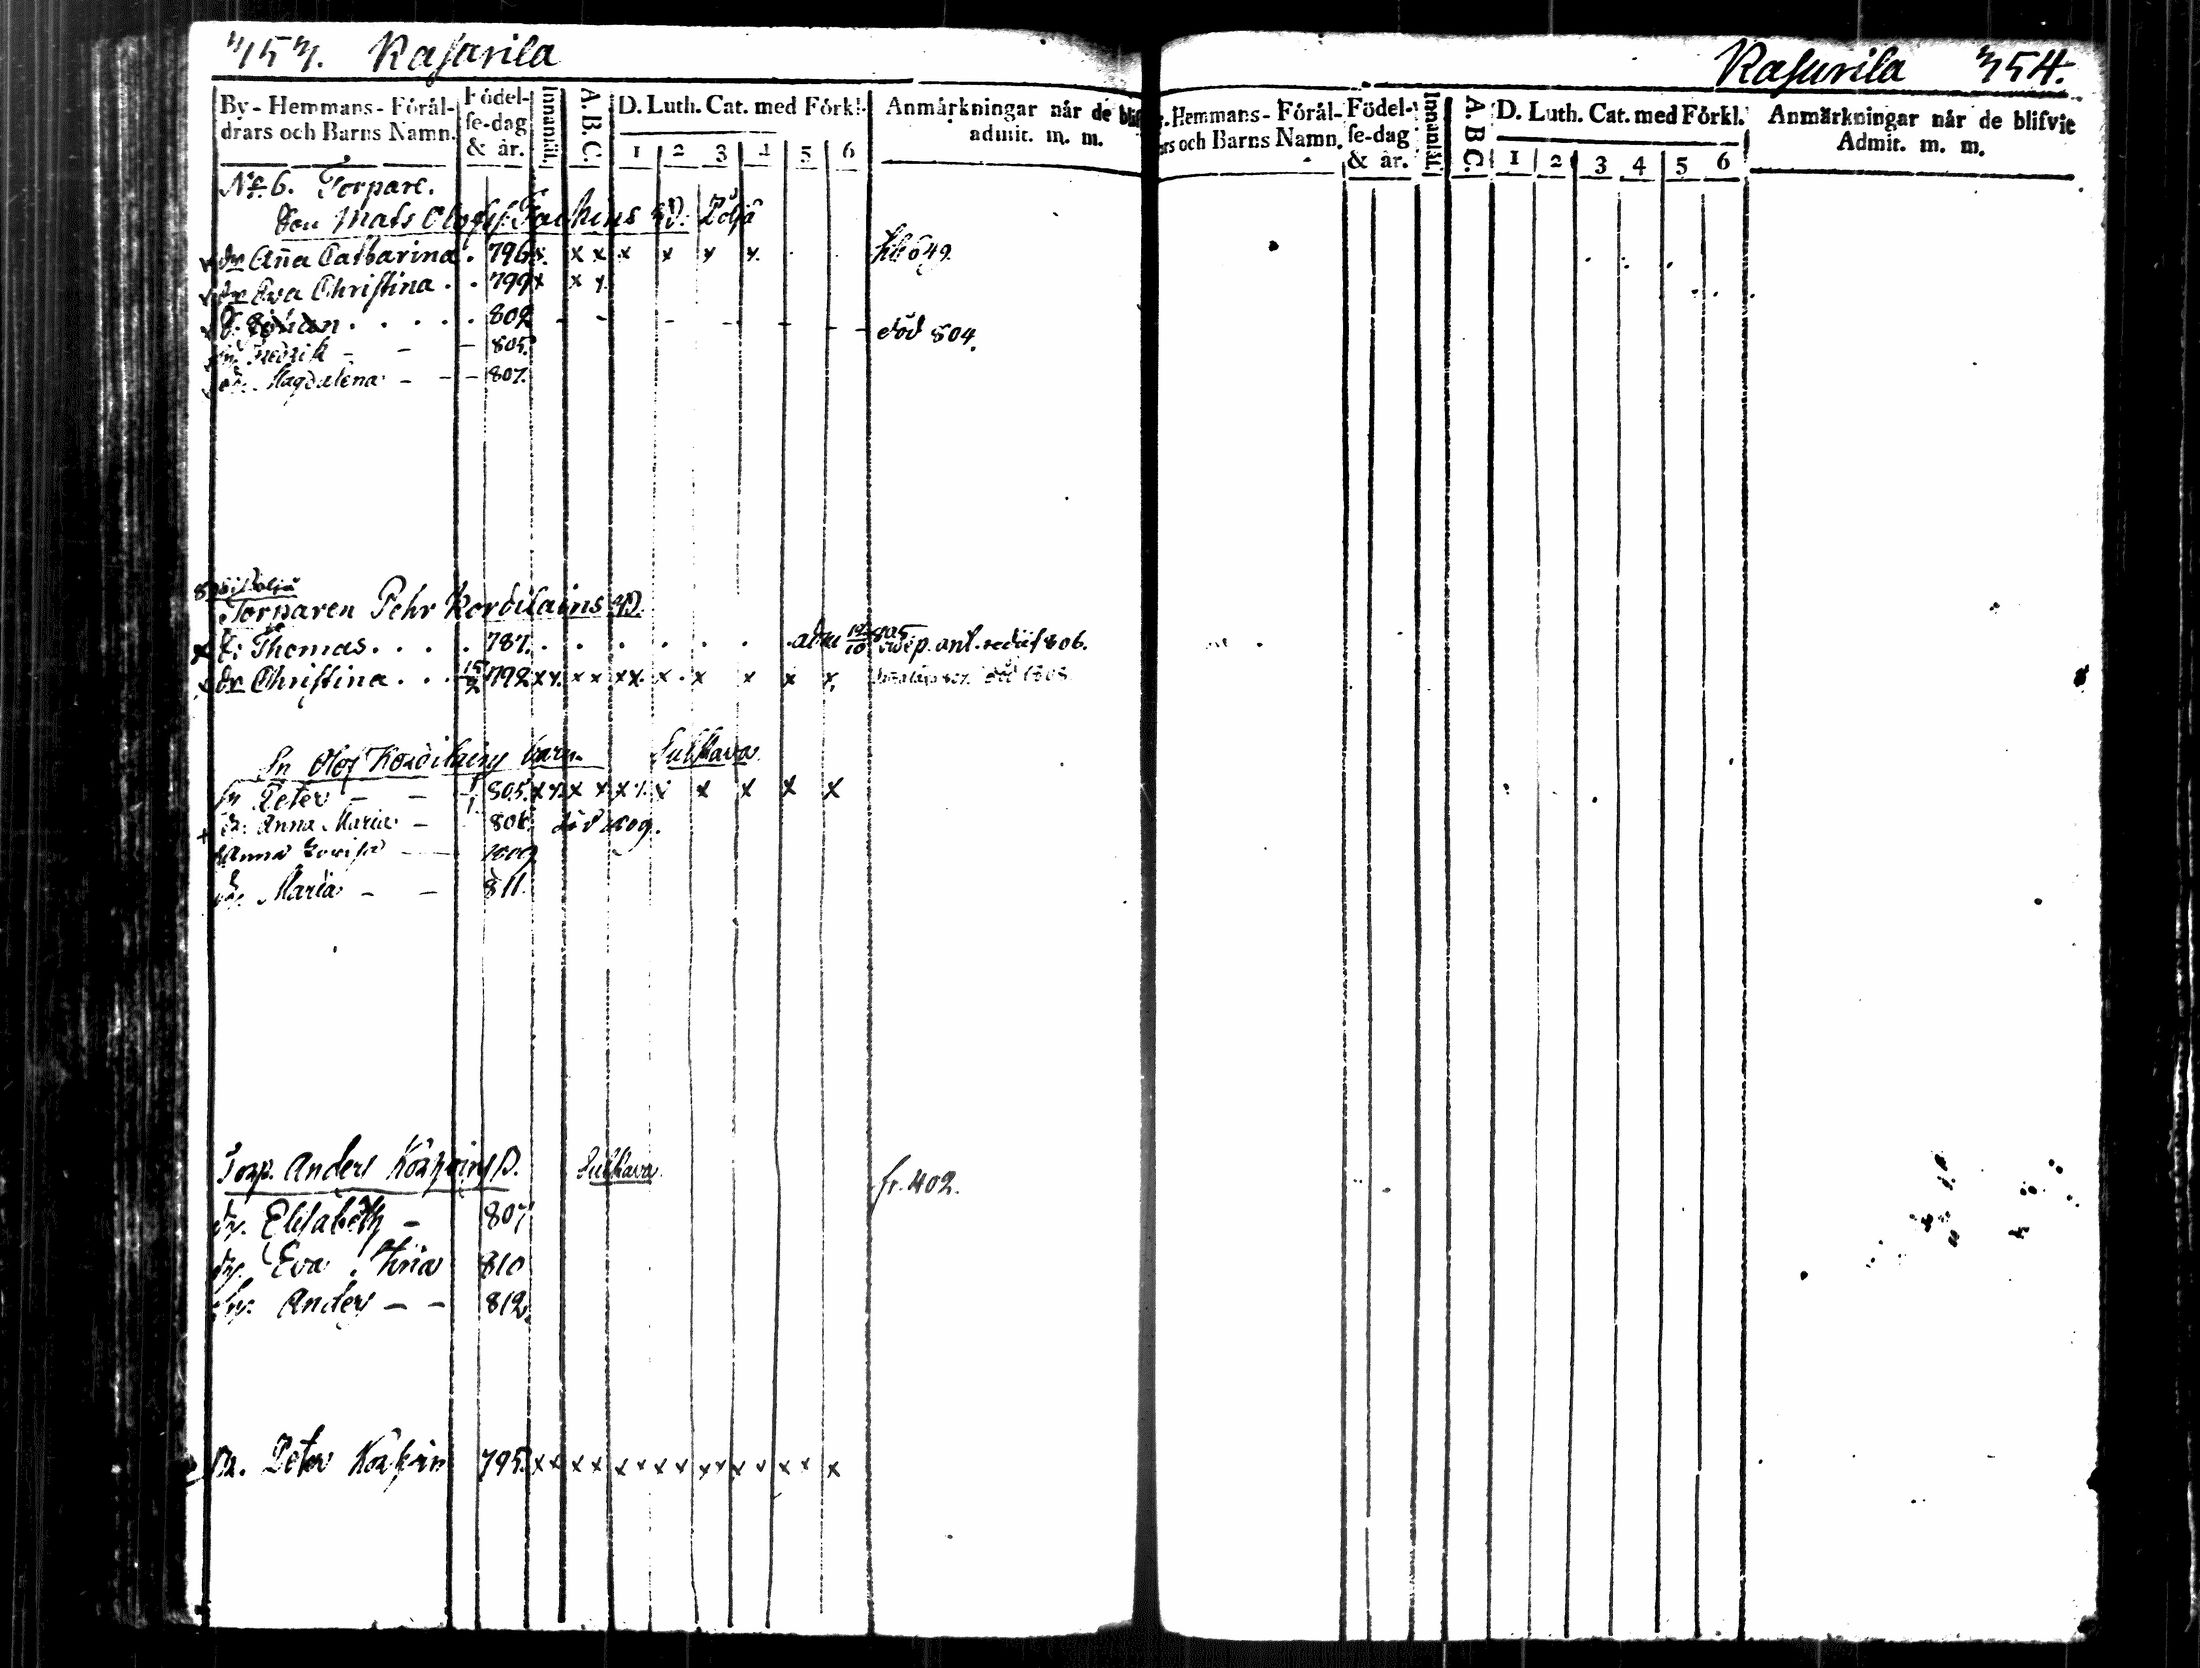 353. Kasurila
By-Hemmans-Förål-
drars och Barns Namn.
Födel-
se-dag
& år.
Innantil.
A.B.C.
D. Luth. Cat. med Förkl.
1 2 3 4 5 6
Anmärkningar når de blif
admit. m. m.
No 6. Torpare.
Son Mats Olofs
dr Aña Catharina . 796 x x x x x x x
dr Eva Christina . . 799 x x x
S. Johan . . . . . 802 - - - - - - - död 804.
Sn. Fredrik - - - 805.
dr. Magdalena - - - 807.
Torparen Pehr Kordilains
S: Thomas. . . . . 787. adm 805 ant. 806.
dr Christina . . . 15/2 792 x x x x x x x x x x x
Sn Olof Kordilains barn. Sulkava
Sn Peter - - 1/1 805. x x x x x x x x x x x
dr. Anna Maria - 808. död 1809.
Anna Lovisa 1809
dr. Maria - - 811.
Torp. Anders D. Sulkava fr. 402.
dr. Elisabeth - 807
dr. Eva Stina 810
Sn: Anders - - 812
Peter 795. x x x x x x x x x x x x x x x
Kasurila 354.
Hemmans-Förål-
och Barns Namn.
Födel-
se-dag
& år.
Innantil.
A.B.C.
D. Luth. Cat. med Förkl.
1 2 3 4 5 6
Anmärkningar når de blifvit
Admit. m. m.